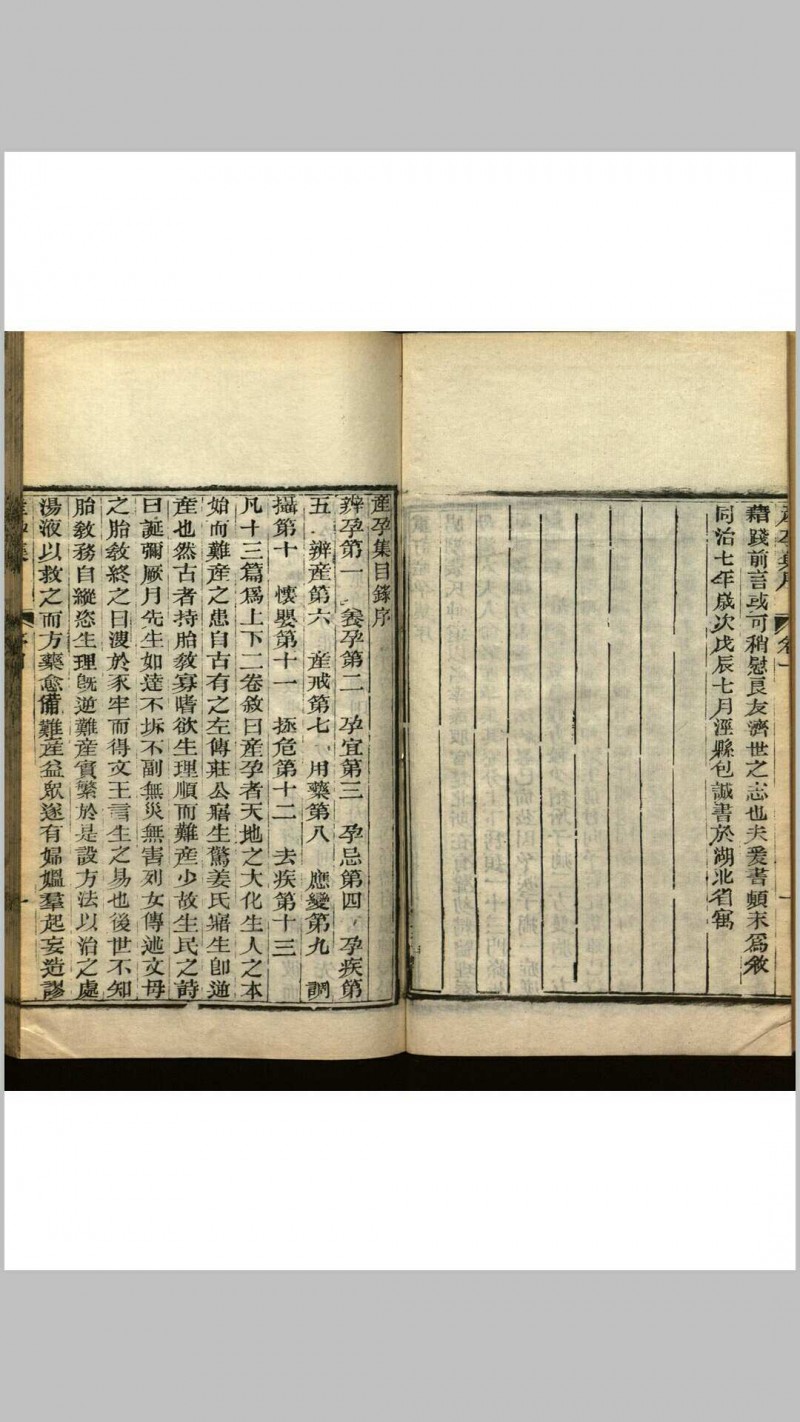 藉踐前言或可稍慰良友濟世之志也夫爰書顛末為敘
同治七年歲次戊辰七月涇縣包誠書於湖北省寓
產孕集目錄序
辨孕第一 養孕第二 孕宜第三 孕忌第四 孕疾第
五 辨產第六 產戒第七 用藥第八 應變第九 調
攝第十 懷嬰第十一 拯危第十二 去疾第十三
凡十三篇爲上下二卷敘曰產孕者天地之大化生人之本
始而難產之患自古有之左傳莊公寤生驚姜氏寤生卽逆
產也然古者持胎敎寡嗜欲生理順而難產少故生民之詩
曰誕彌厥月先生如達不坼不副無災無害列女傳述文母
之胎敎終之曰溲於豕牢而得文王言生之易也後世不知
胎敎務自縱恣生理旣逆難產實繁於是設方法以治之處
湯液以救之而方藥愈備難產益眾遂有婦媼羣起妄造謬